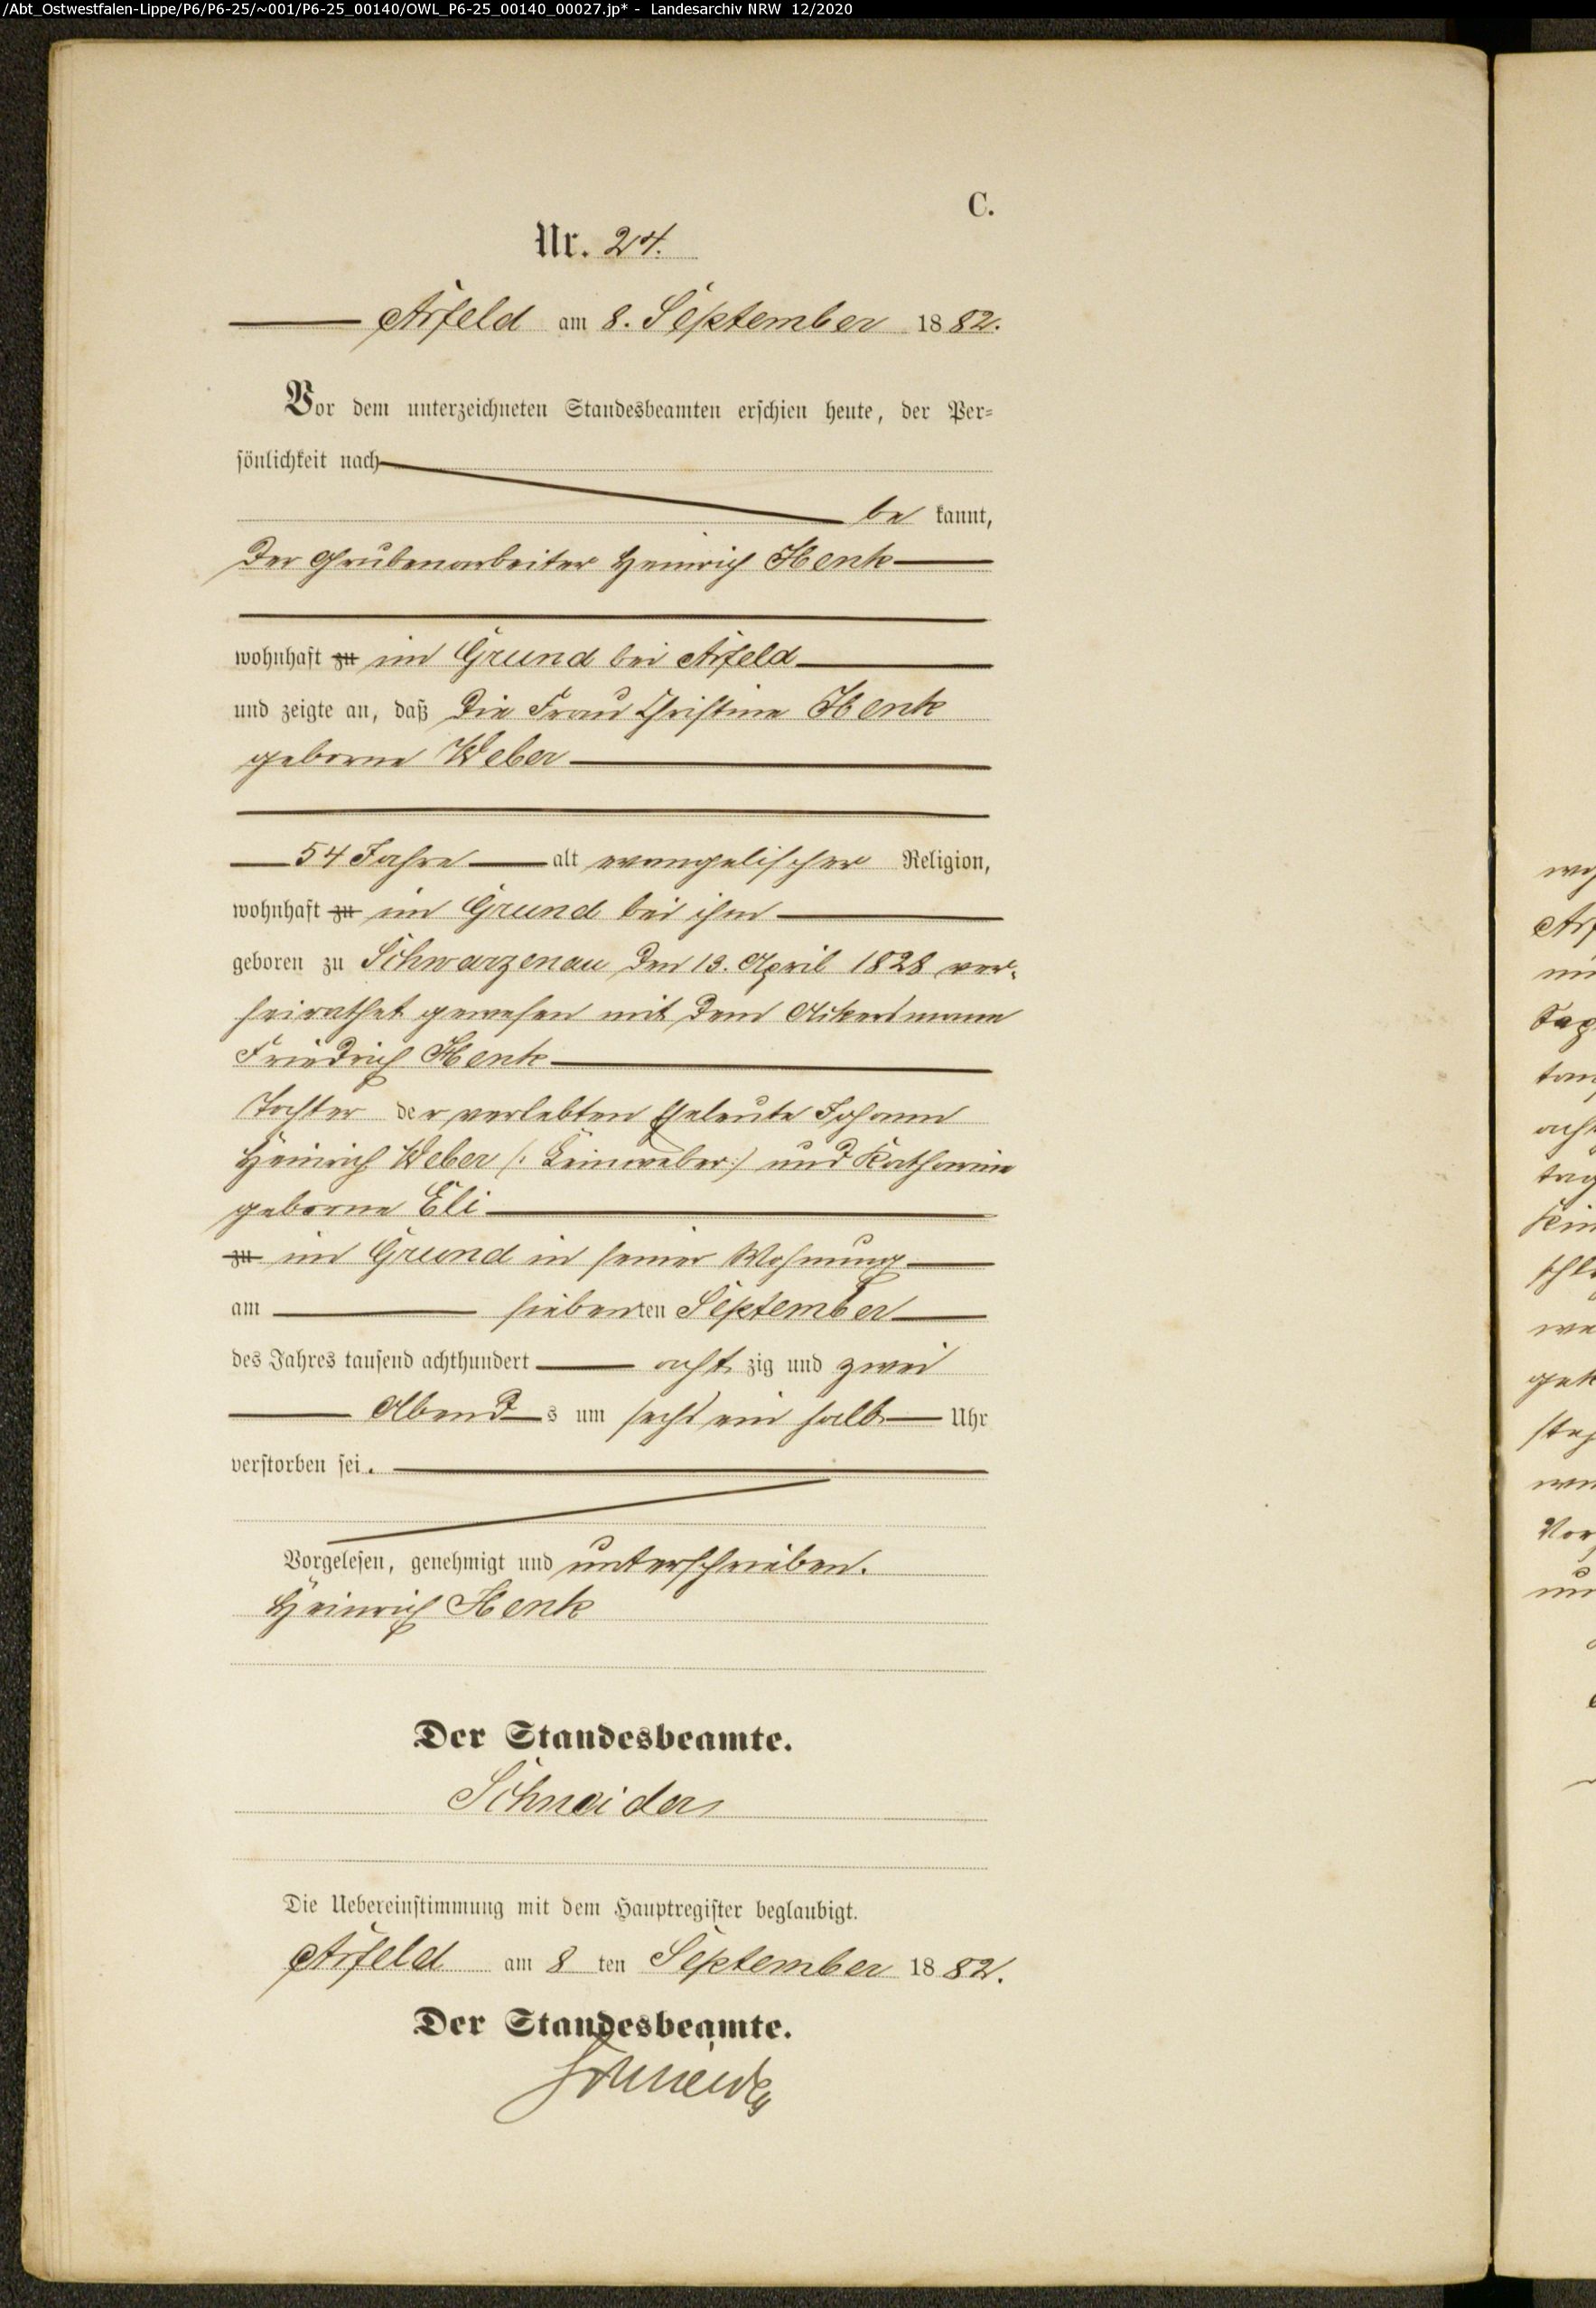 /Abt_Ostwestfalen-Lippe/P6/P6-25/~001/P6-25_00140/OWL_P6-25_00140_00027.jp* - Landesarchiv NRW 12/2020
C.
Nr. 24.
Arfeld am 8. September 1882.
Vor dem unterzeichneten Standesbeamten erschien heute, der Per-
sönlichkeit nach
be kannt,
der Grubenarbeiter Heinrich Henk
wohnhaft zu im Grund bei Arfeld
und zeigte an, daß die Frau Christine Henk
geborne Weber
54 Jahre alt evangelischer Religion,
wohnhaft zu im Grund bei ihm
geboren zu Schwarzenau den 13. April 1828 ver-
heirathet gewesen mit dem Ackersmann
Friedrich Henk
Tochter der verlebten Eheleute Johann
Heinrich Weber (: Leinweber :) und Katharine
geborne Eli
zu im Grund in seiner Wohnung
am siebenten September
des Jahres tausend achthundert acht zig und zwei
Abend s um sechs ein halb Uhr
verstorben sei.
Vorgelesen, genehmigt und unterschrieben.
Heinrich Henk
Der Standesbeamte.
Schneider
Die Uebereinstimmung mit dem Hauptregister beglaubigt.
Arfeld am 8 ten September 1882.
Der Standesbeamte.
Schneider